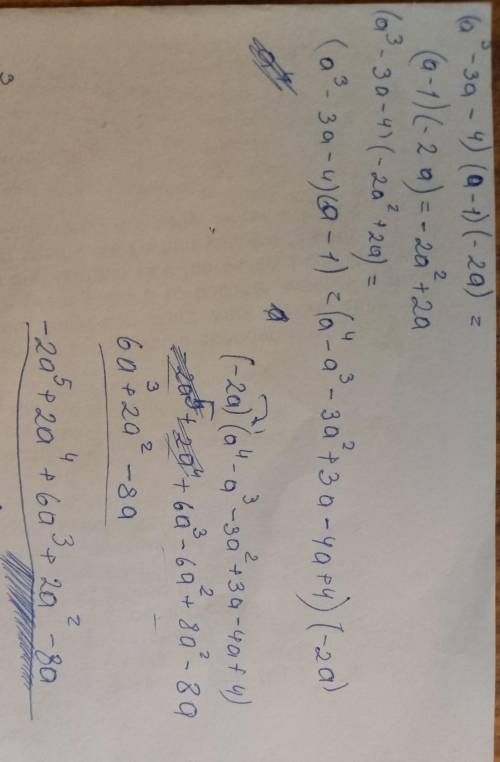 (a³ - 3a - 4) (a - 1) (-2a) =
(a - 1) (-2a) = -2a² + 2a
(a³ - 3a - 4) (-2a² + 2a) =
(a³ - 3a - 4)(a - 1) = (a⁴ - a³ - 3a² + 3a - 4a + 4) (-2a)
(-2a) (a⁴ - a³ - 3a² + 3a - 4a + 4)
-2a⁵ + 2a⁴ + 6a³ - 6a² + 8a² - 8a
6a³ + 2a² - 8a
-2a⁵ + 2a⁴ + 6a³ + 2a² - 8a
3